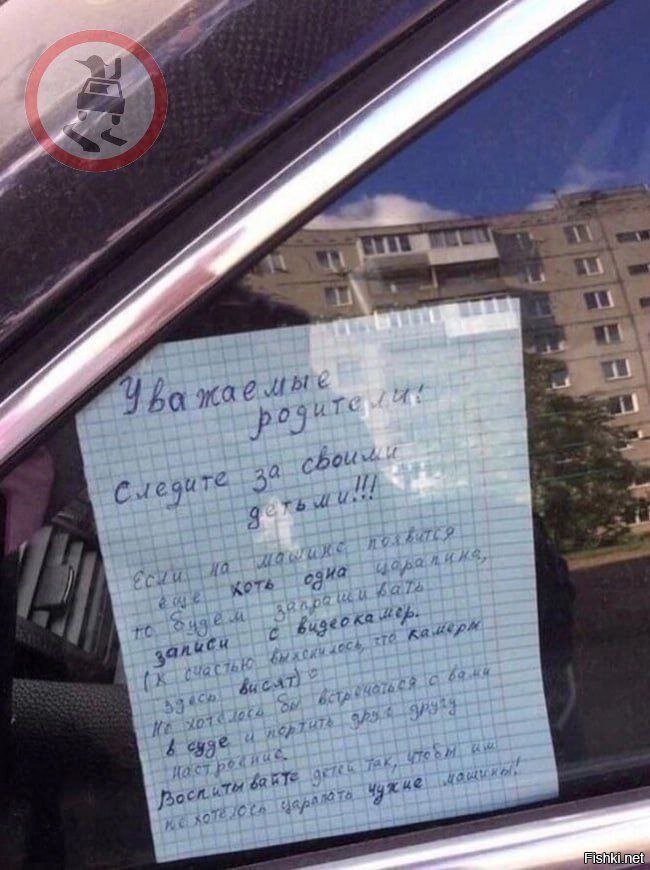 Уважаемые
родители!
Следите за своими
детьми!!!
Если на машине появится
еще хоть одна царапина,
то будем запрашивать
записи с видеокамер.
(к счастью выяснилось, что камеры
здесь висят)
Не хотелось бы встречаться с вами
в суде и портить друг другу
настроение.
Воспитывайте детей так, чтобы им
не хотелось царапать чужие машины!
Fishki.net